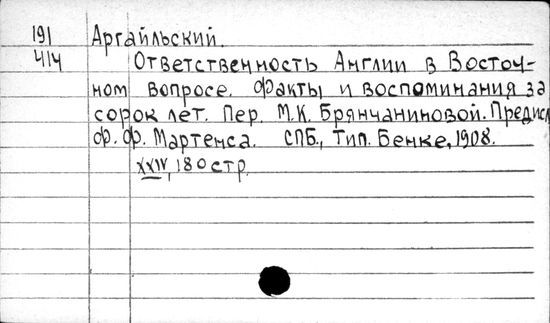 191 Аргайльский.
414 Ответственность Англии в Восточ-
ном вопросе. Факты и воспоминания за
сорок лет. Пер. М.К. Брянчаниновой. Предисл.
Ф. Ф. Мартенса. СПБ, Тип. Бенке, 1908.
XXIV, 180 стр.